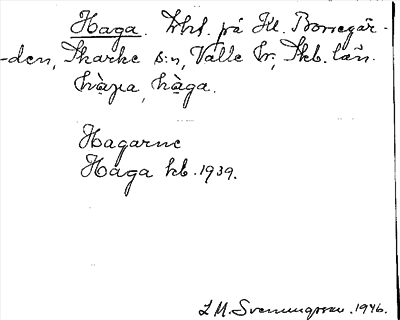 Haga. Lht. på Kl. Borregår-
-den, Skarke s:n, Valle hr, Skb. län.
hàga, hàga.
Hagarne
Haga kb. 1939.
L M. Svenungsson. 1946.